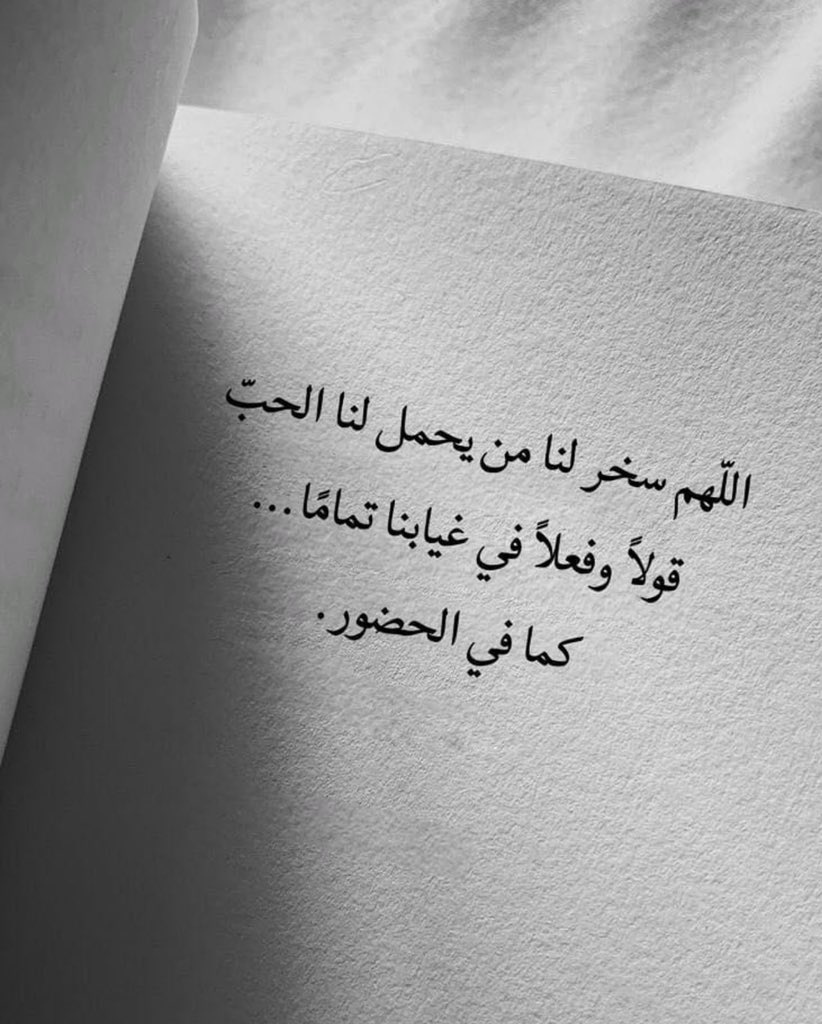 اللّهم سخر لنا من يحمل لنا الحبّ
قولاً وفعلاً في غيابنا تمامًا...
كما في الحضور.